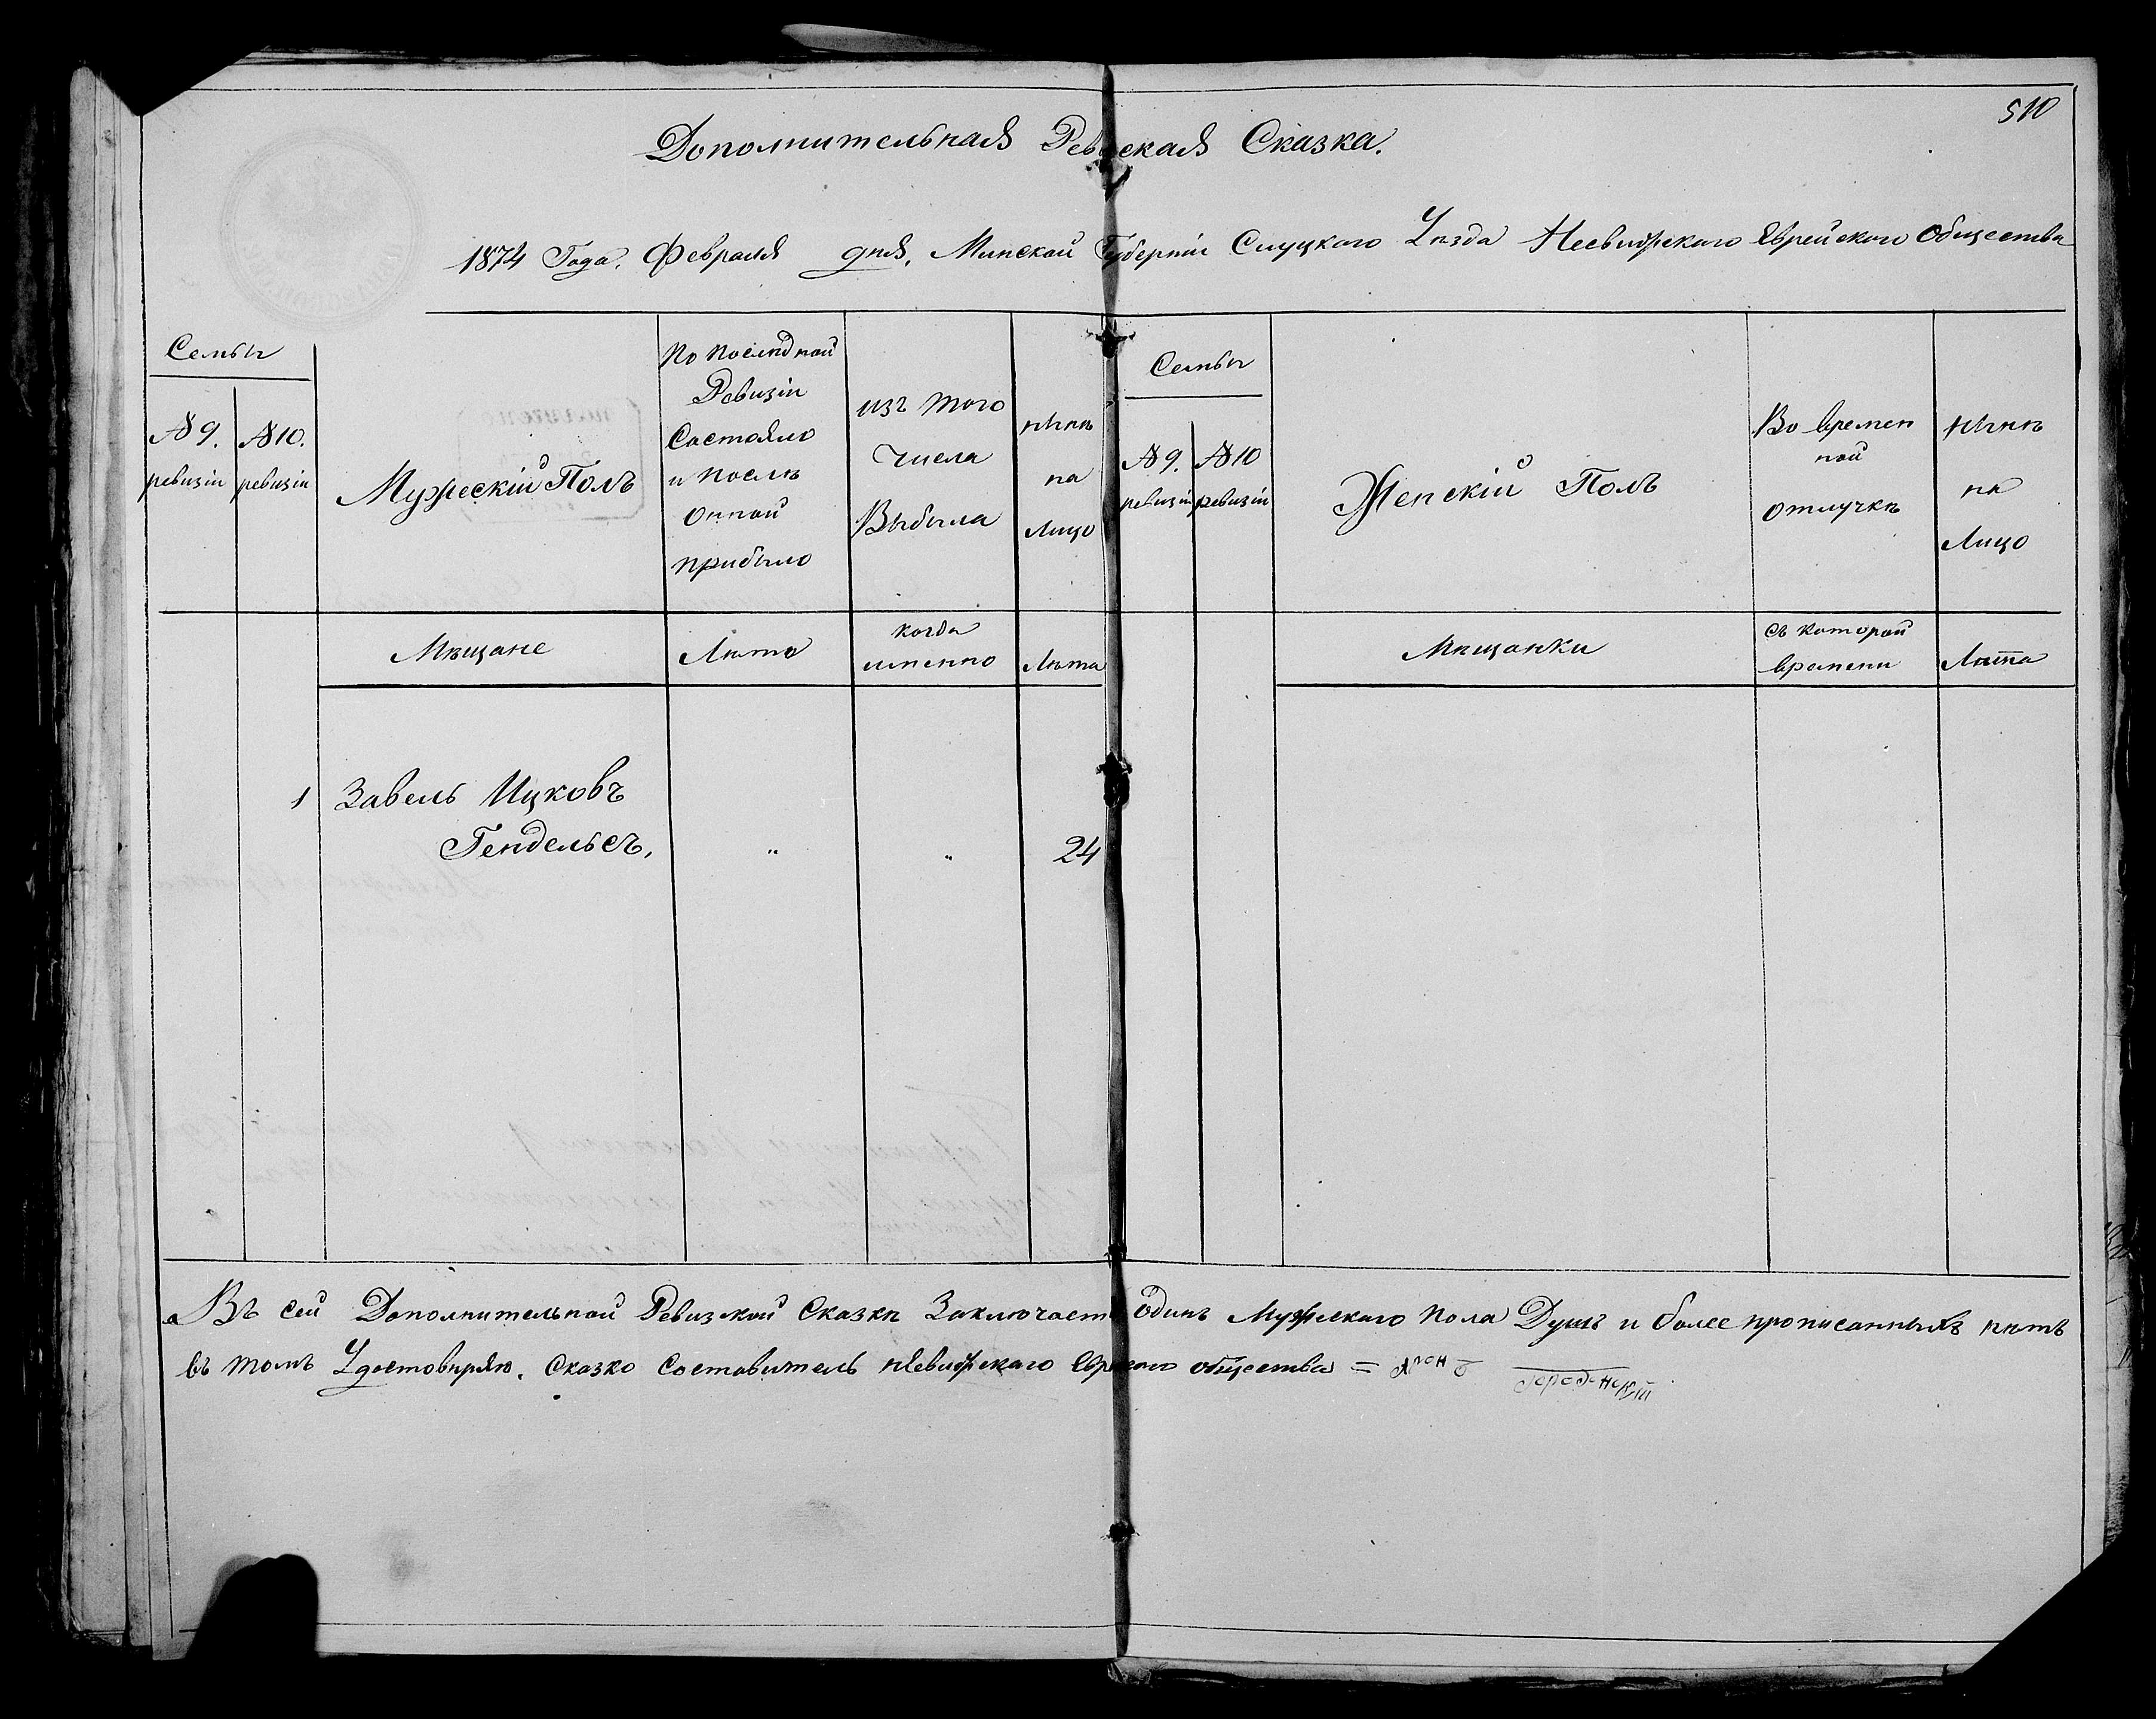 510
Дополнительная Ревзская Сказка.
1874 Года. Февраля дня, Минской Губерніи Слуцкого Уѣзда Несвижского Еврейского Общества
Семьи
№ 9. ревизіи
№ 10. ревизіи
Мужескій Полъ
По последной
Ревизіи
Состояло
и послѣ
Онной
прибыло
изъ того
Числа
Выбыла
нынѣ
на
Лицо
Семьи
№ 9. ревизіи
№ 10 ревизіи
Женскій Полъ
Во времен
ной
отлучкѣ
нынѣ
на
Лицо
Мѣщане
Лѣта
когда
именно
Лѣта
Мѣщанки
съ которой
времени
Лѣта
1 Завель Ицковъ
Гендельсъ, " " 24
Въ сей Дополнительной Ревизкой Сказки Заключаетъ Одинъ Мужескаго пола Душъ и более прописанныхъ нѣтъ
въ томъ Удостовѣряю. Сказко Составитель Несвижскаго Еврского общества =